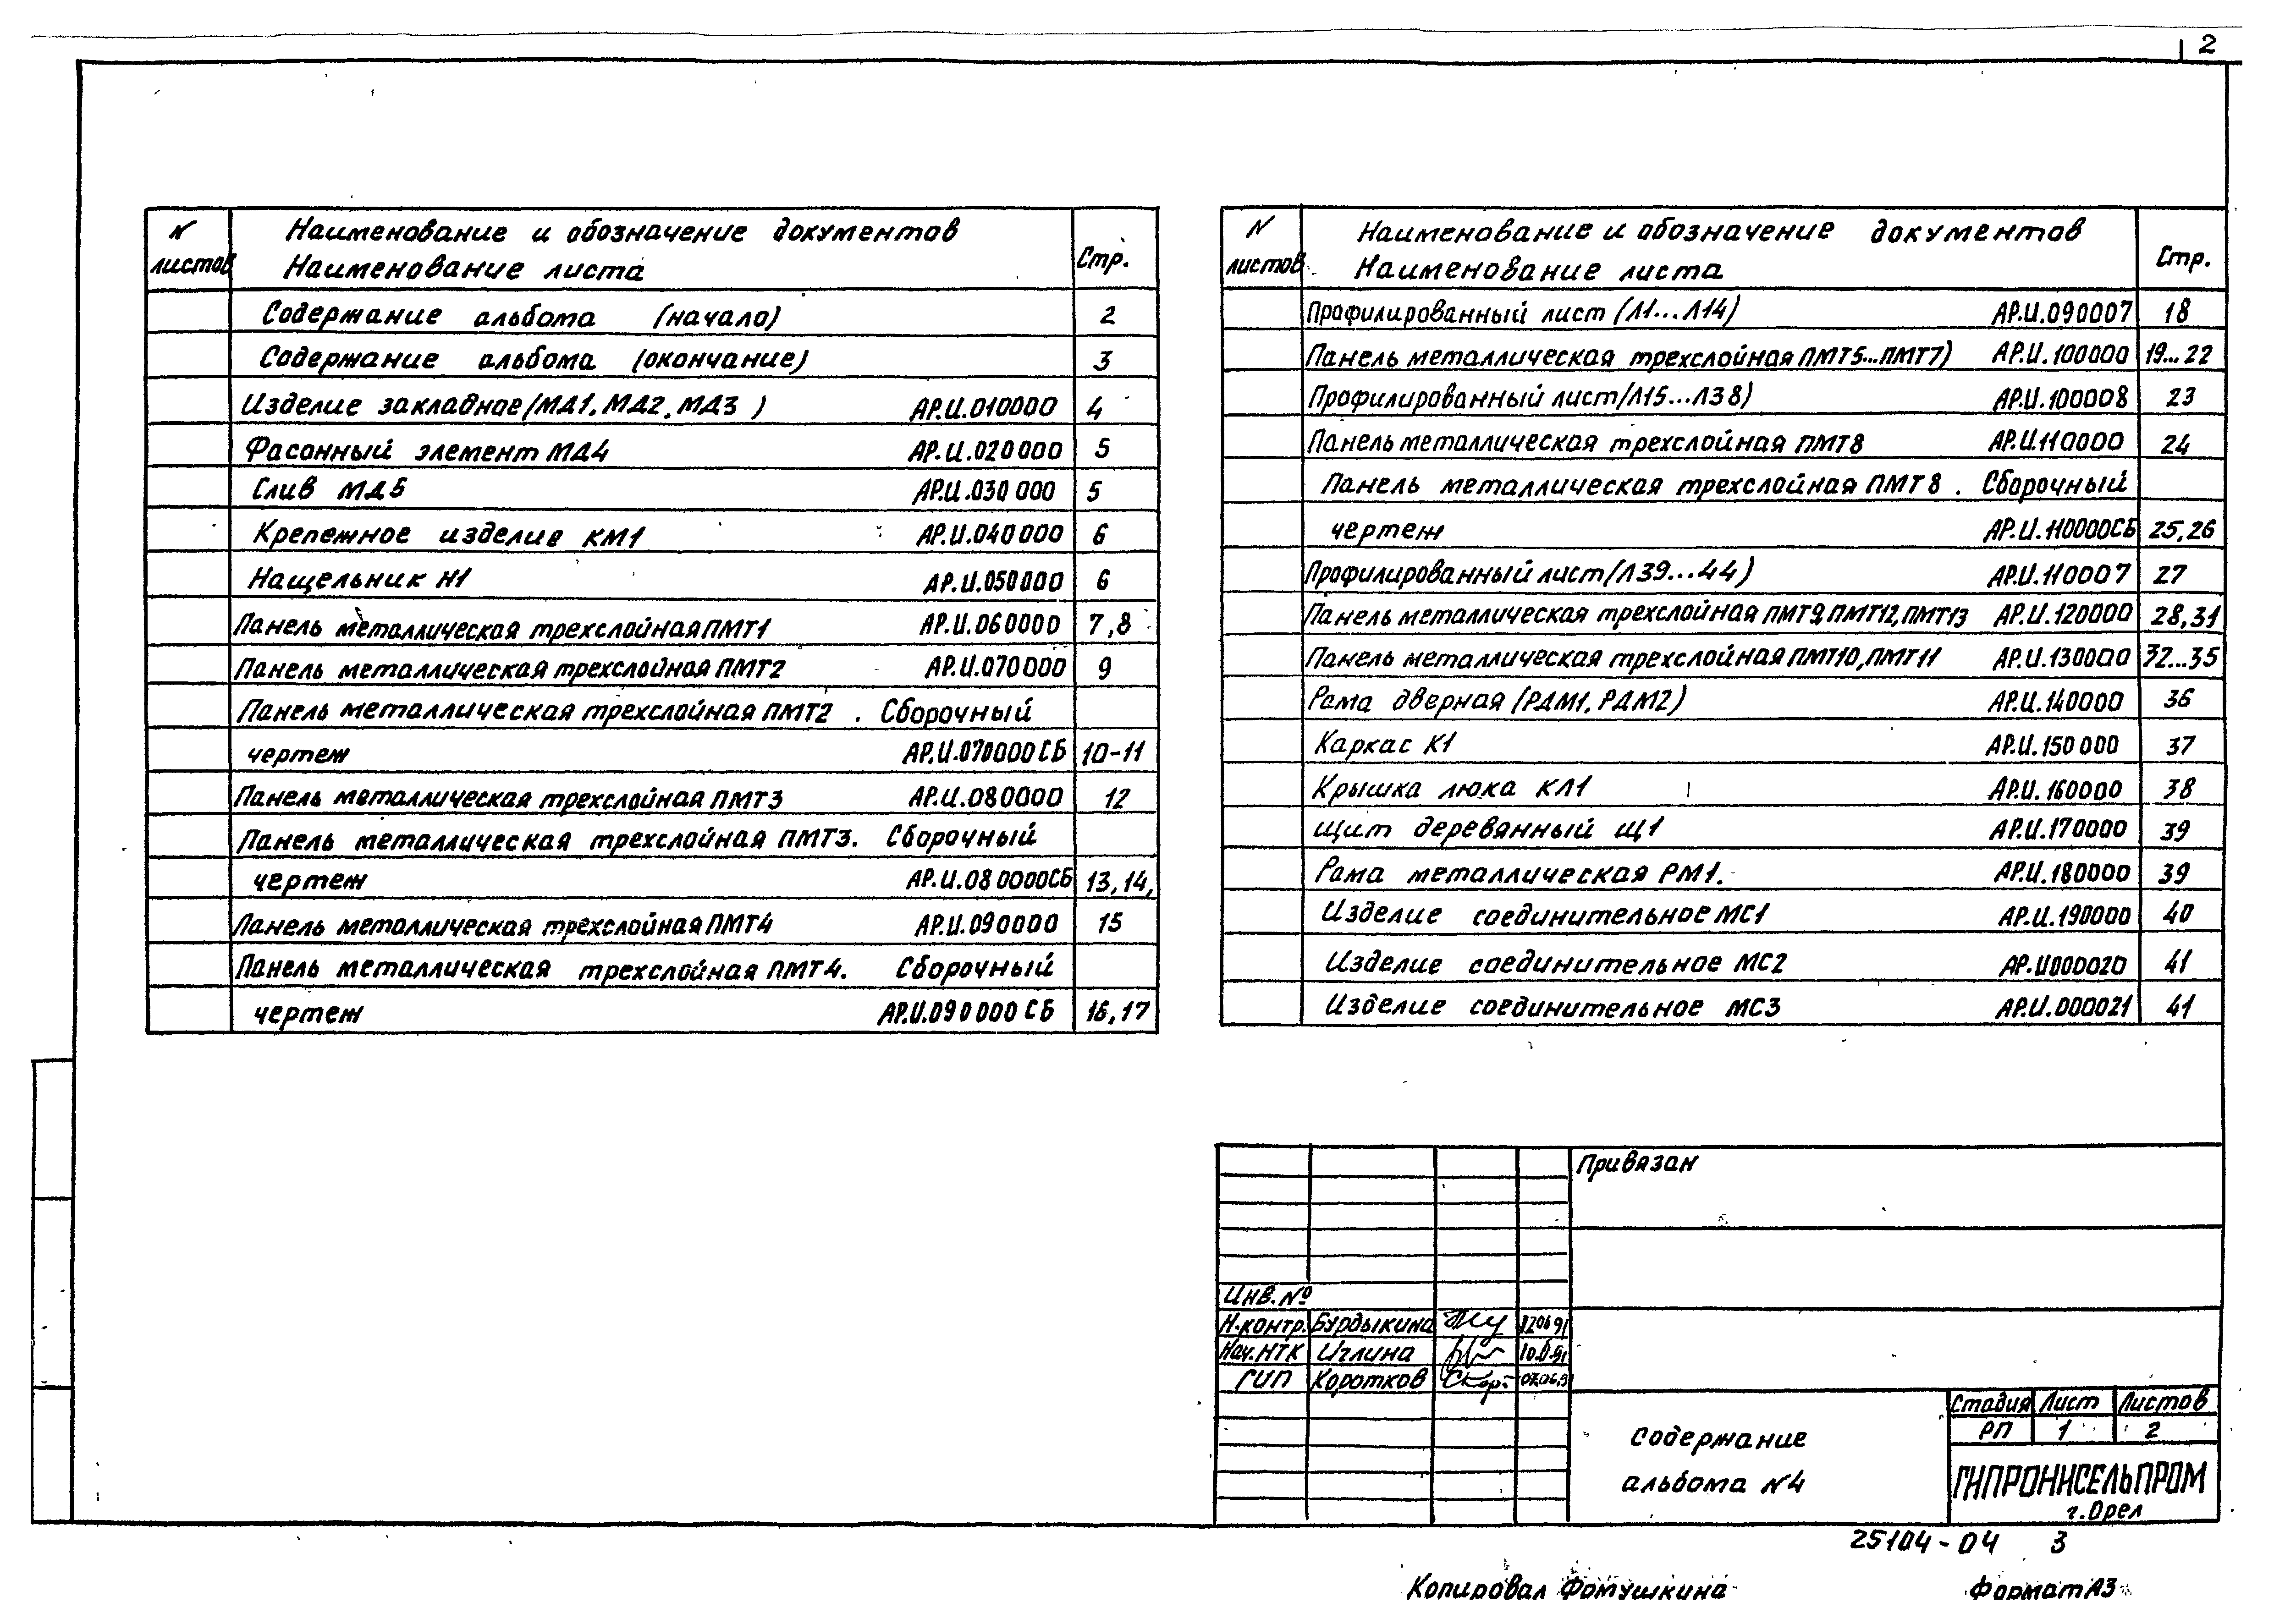 2
N листов Наименование и обозначение документов Наименование листа Стр.
Содержание альбома (начало) 2
Содержание альбома (окончание) 3
Изделие закладное (МД1, МД2, МД3) АР.И.010000 4
Фасонный элемент МД4 АР.И.020000 5
Слив МД5 АР.И.030000 5
Крепежное изделие КМ1 АР.И.040000 6
Нащельник Н1 АР.И.050000 6
Панель металлическая трехслойная ПМТ1 АР.И.060000 7,8
Панель металлическая трехслойная ПМТ2 АР.И.070000 9
Панель металлическая трехслойная ПМТ2. Сборочный
чертеж АР.И.070000СБ 10-11
Панель металлическая трехслойная ПМТ3 АР.И.080000 12
Панель металлическая трехслойная ПМТ3. Сборочный
чертеж АР.И.080000СБ 13,14,
Панель металлическая трехслойная ПМТ4 АР.И.090000 15
Панель металлическая трехслойная ПМТ4. Сборочный
чертеж АР.И.090000СБ 16,17
N листов Наименование и обозначение документов Наименование листа Стр.
Профилированный лист (Л1...Л14) АР.И.090007 18
Панель металлическая трехслойная ПМТ5...ПМТ7) АР.И.100000 19...22
Профилированный лист (Л15...Л38) АР.И.100008 23
Панель металлическая трехслойная ПМТ8 АР.И.110000 24
Панель металлическая трехслойная ПМТ8. Сборочный
чертеж АР.И.110000СБ 25,26
Профилированный лист (Л39...44) АР.И.110007 27
Панель металлическая трехслойная ПМТ9, ПМТ12, ПМТ13 АР.И.120000 28,31
Панель металлическая трехслойная ПМТ10, ПМТ11 АР.И.130000 32...35
Рама дверная (РДМ1, РДМ2) АР.И.140000 36
Каркас К1 АР.И.150000 37
Крышка люка КЛ1 АР.И.160000 38
Щит деревянный Щ1 АР.И.170000 39
Рама металлическая РМ1. АР.И.180000 39
Изделие соединительное МС1 АР.И.190000 40
Изделие соединительное МС2 АР.И000020 41
Изделие соединительное МС3 АР.И.000021 41
Привязан
Инв. №
Н.контр. Бурдыкина
Нач. НТК Иглина
ГИП Коротков
Содержание
альбома N4
Стадия Лист Листов
РП 1 2
ГИПРОНИСЕЛЬПРОМ
г. Орел
25104-04 3
Копировал Фомушкина Формат А3